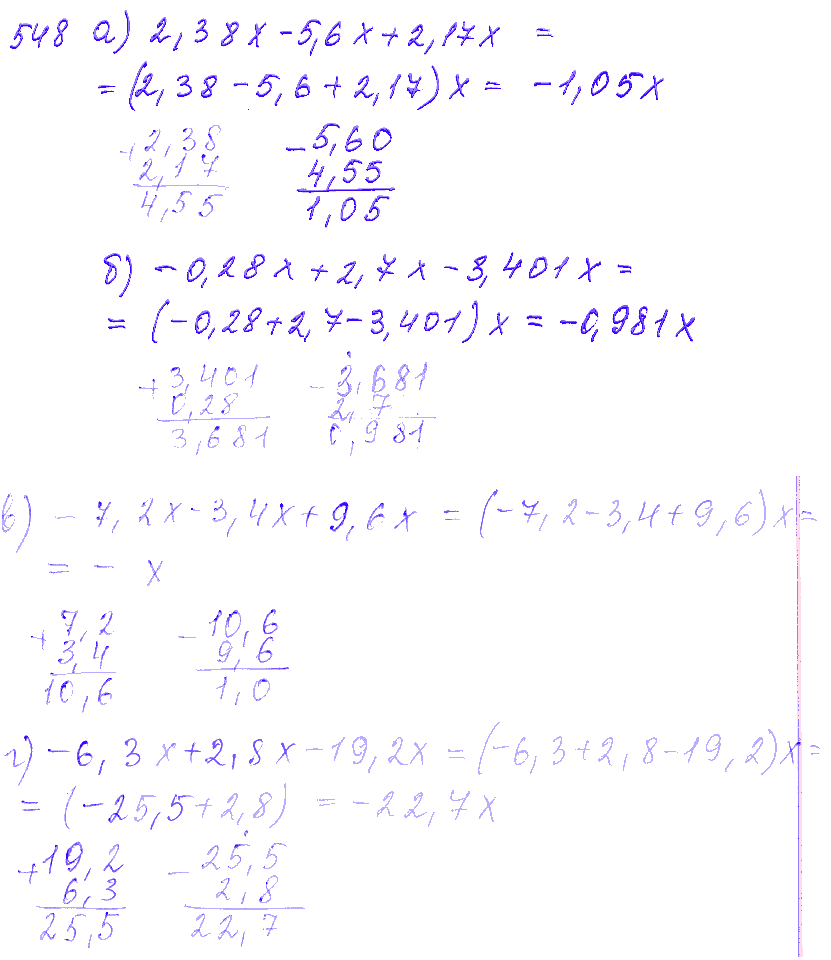 548 а) 2,38x - 5,6x + 2,17x =
= (2,38 - 5,6 + 2,17) x = -1,05x
+ 2,38 - 5,60
2,17 4,55
4,55 1,05
б) -0,28x + 2,7x - 3,401x =
= (-0,28 + 2,7 - 3,401) x = -0,981x
+ 3,401 - 3,681
0,28 2,7
3,681 0,981
в) - 7,2x - 3,4x + 9,6x = (-7,2 - 3,4 + 9,6) x =
= - x
+ 7,2 - 10,6
3,4 9,6
10,6 1,0
г) -6,3x + 2,8x - 19,2x = (-6,3 + 2,8 - 19,2) x =
= (-25,5 + 2,8) = -22,7x
+ 19,2 - 25,5
6,3 2,8
25,5 22,7